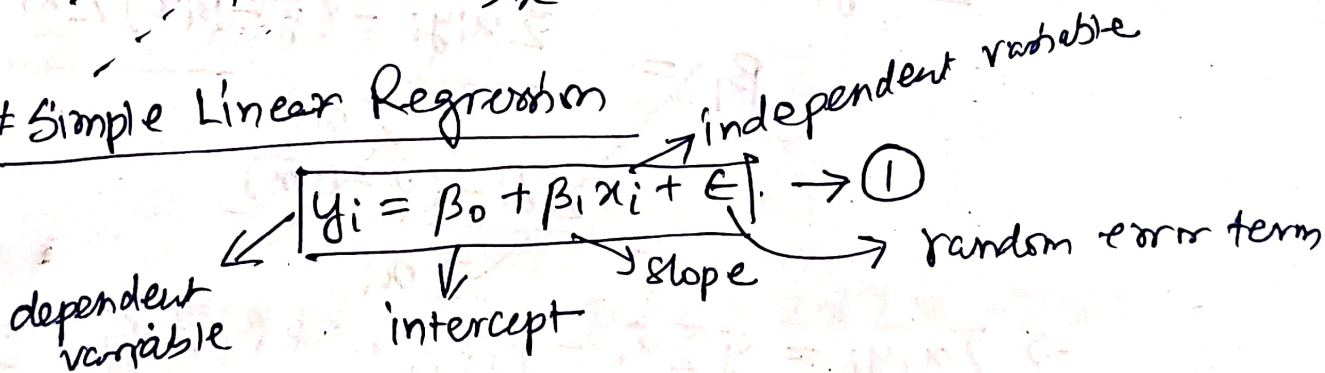 # Simple Linear Regression
independent variable
yi = β0 + β1 xi + ϵ. → ①
random error term
slope
intercept
dependent
variable